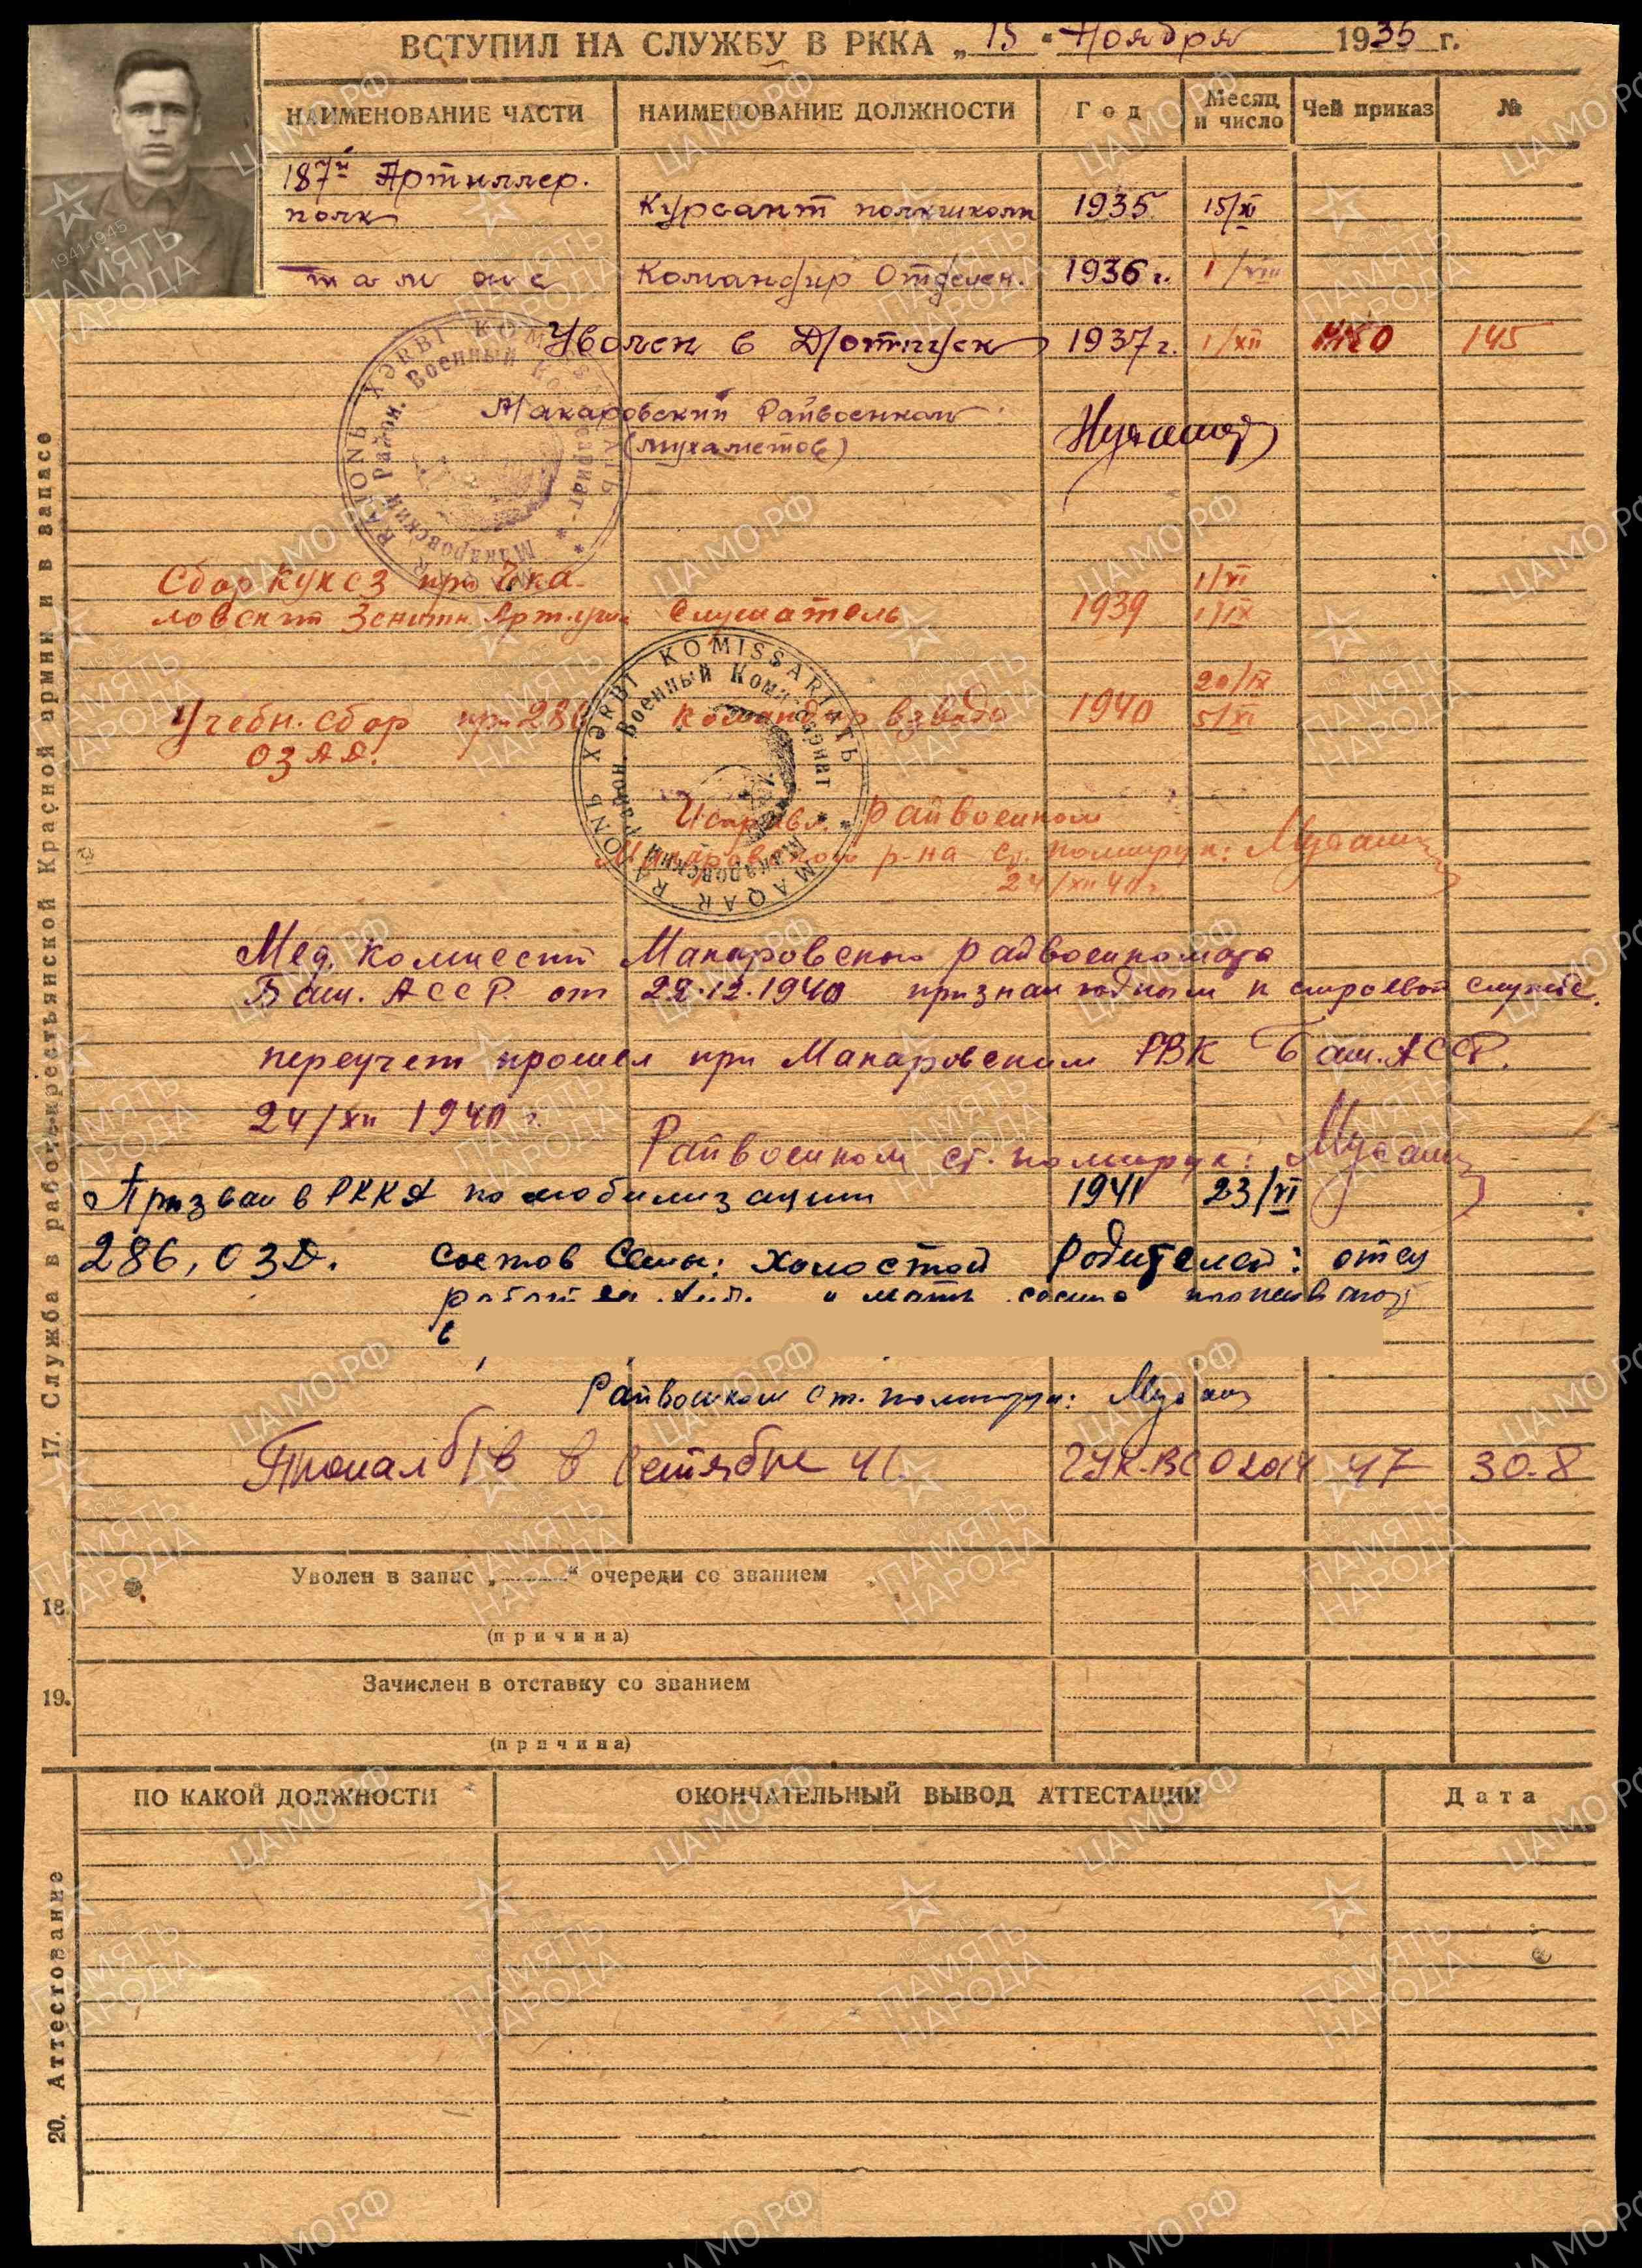 ВСТУПИЛ НА СЛУЖБУ В РККА „ 15 “ Ноября 1935 г.
НАИМЕНОВАНИЕ ЧАСТИ НАИМЕНОВАНИЕ ДОЛЖНОСТИ Год Месяц и число Чей приказ №
187й Артиллер.
полк Курсант полкшколы 1935 15/XI
там же Командир Отделен. 1936 г. 1/VIII
Уволен в Д/отпуск 1937 г. 1/XII НКО 145
Макаровский Райвоенком:
(Мухаметов)
RAJONЬ XӘRBI KOMISSARIATЬ
Макаровский Район. Военный Комиссариат
Сбор КУКСЗ при Чка- 1/VI
ловском Зенитн. Арт. учил. Слушатель 1939 1/IX
20/IX
Учебн. сбор при 286 командир взвода 1940 5/XI
ОЗАД.
MAQAR RAJONЬ XӘRBI KOMISSARIATЬ
Макаровский Район. Военный Комиссариат
Райвоенком
Макаровского р-на ст. политрук:
24/XII 40 г.
Мед. комиссии Макаровского райвоенкомата
Баш. АССР. от 22.12.1940 признан годным к строевой службе.
переучет прошел при Макаровском РВК Баш. АССР.
24/XII 1940 г.
Райвоенком ст. политрук:
Призван в РККА по мобилизации 1941 23/VI
286, ОЗД. Состав Семьи: Холостой Родителей: отец
и мать проживают
в
Райвоенком ст. политрук:
Пропал б/в в сентябре 41. ГУК-ВС 02014 47 30.8
17. Служба в рабоче-крестьянской Красной армии и в запасе
18. Уволен в запас „ “ очереди со званием
(причина)
19. Зачислен в отставку со званием
(причина)
ПО КАКОЙ ДОЛЖНОСТИ ОКОНЧАТЕЛЬНЫЙ ВЫВОД АТТЕСТАЦИИ Дата
20. Аттестование
ЦАМО.РФ
1941-1945
ПАМЯТЬ
НАРОДА